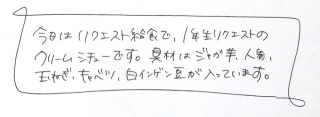 今日はリクエスト給食で、1年生リクエストの
クリームシチューです。具材はジャガ芋、人参、
玉ねぎ、キャベツ、白インゲン豆が入っています。